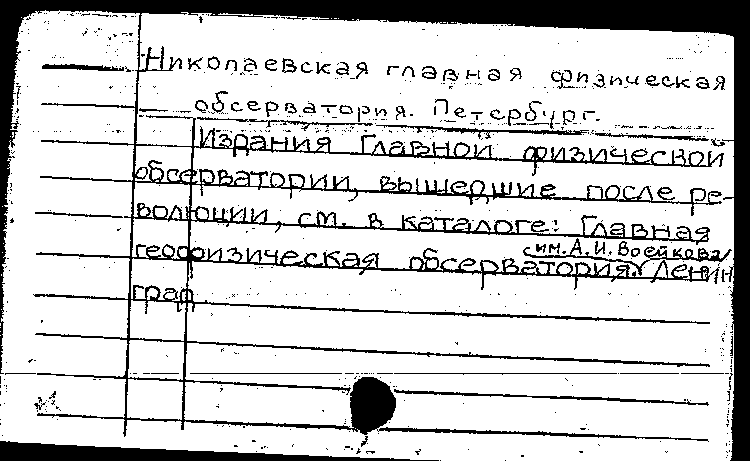 Николаевская главная физическая
обсерватория. Петербург.
Издания Главной физической
обсерватории, вышедшие после ре-
волюции, см. в каталоге: Главная
геофизическая обсерватория
им. А. И. Воейкова
Ленин
град